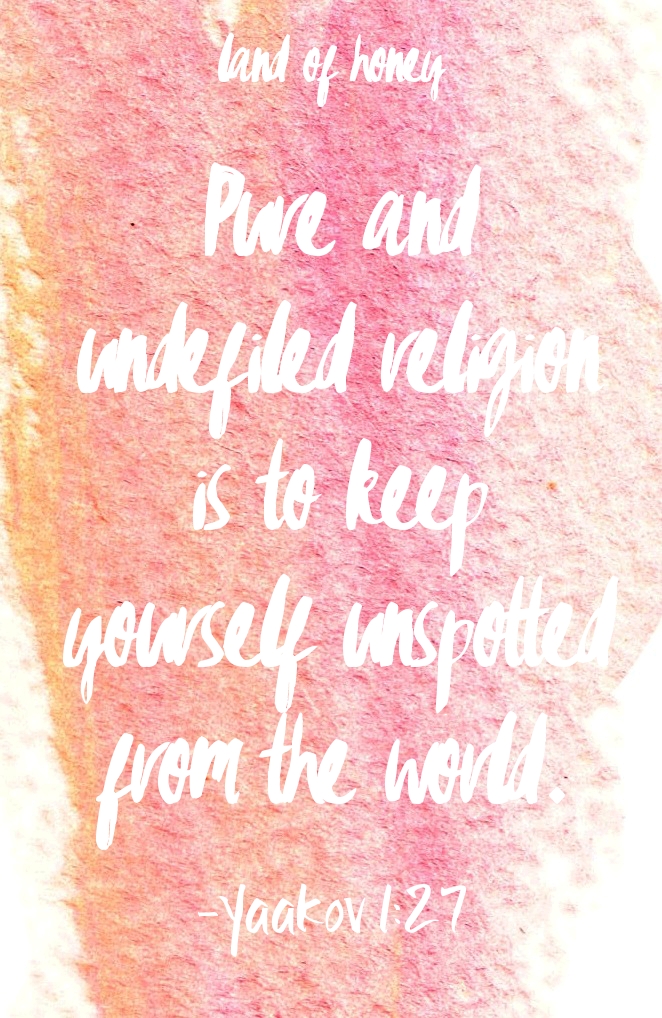 land of honey
Pure and
undefiled religion
is to keep
yourself unspotted
from the world.
-Yaakov 1:27